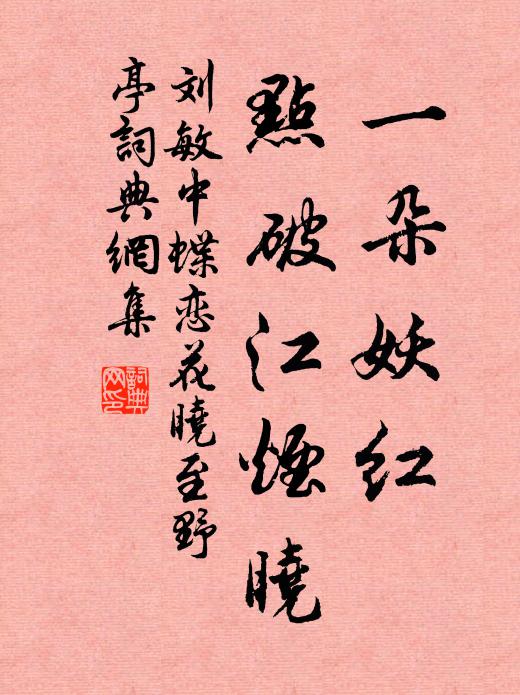 一朵妖红
點破江煙曉
刘敏中蝶恋花曉至野
亭詞典網集
詞典网印